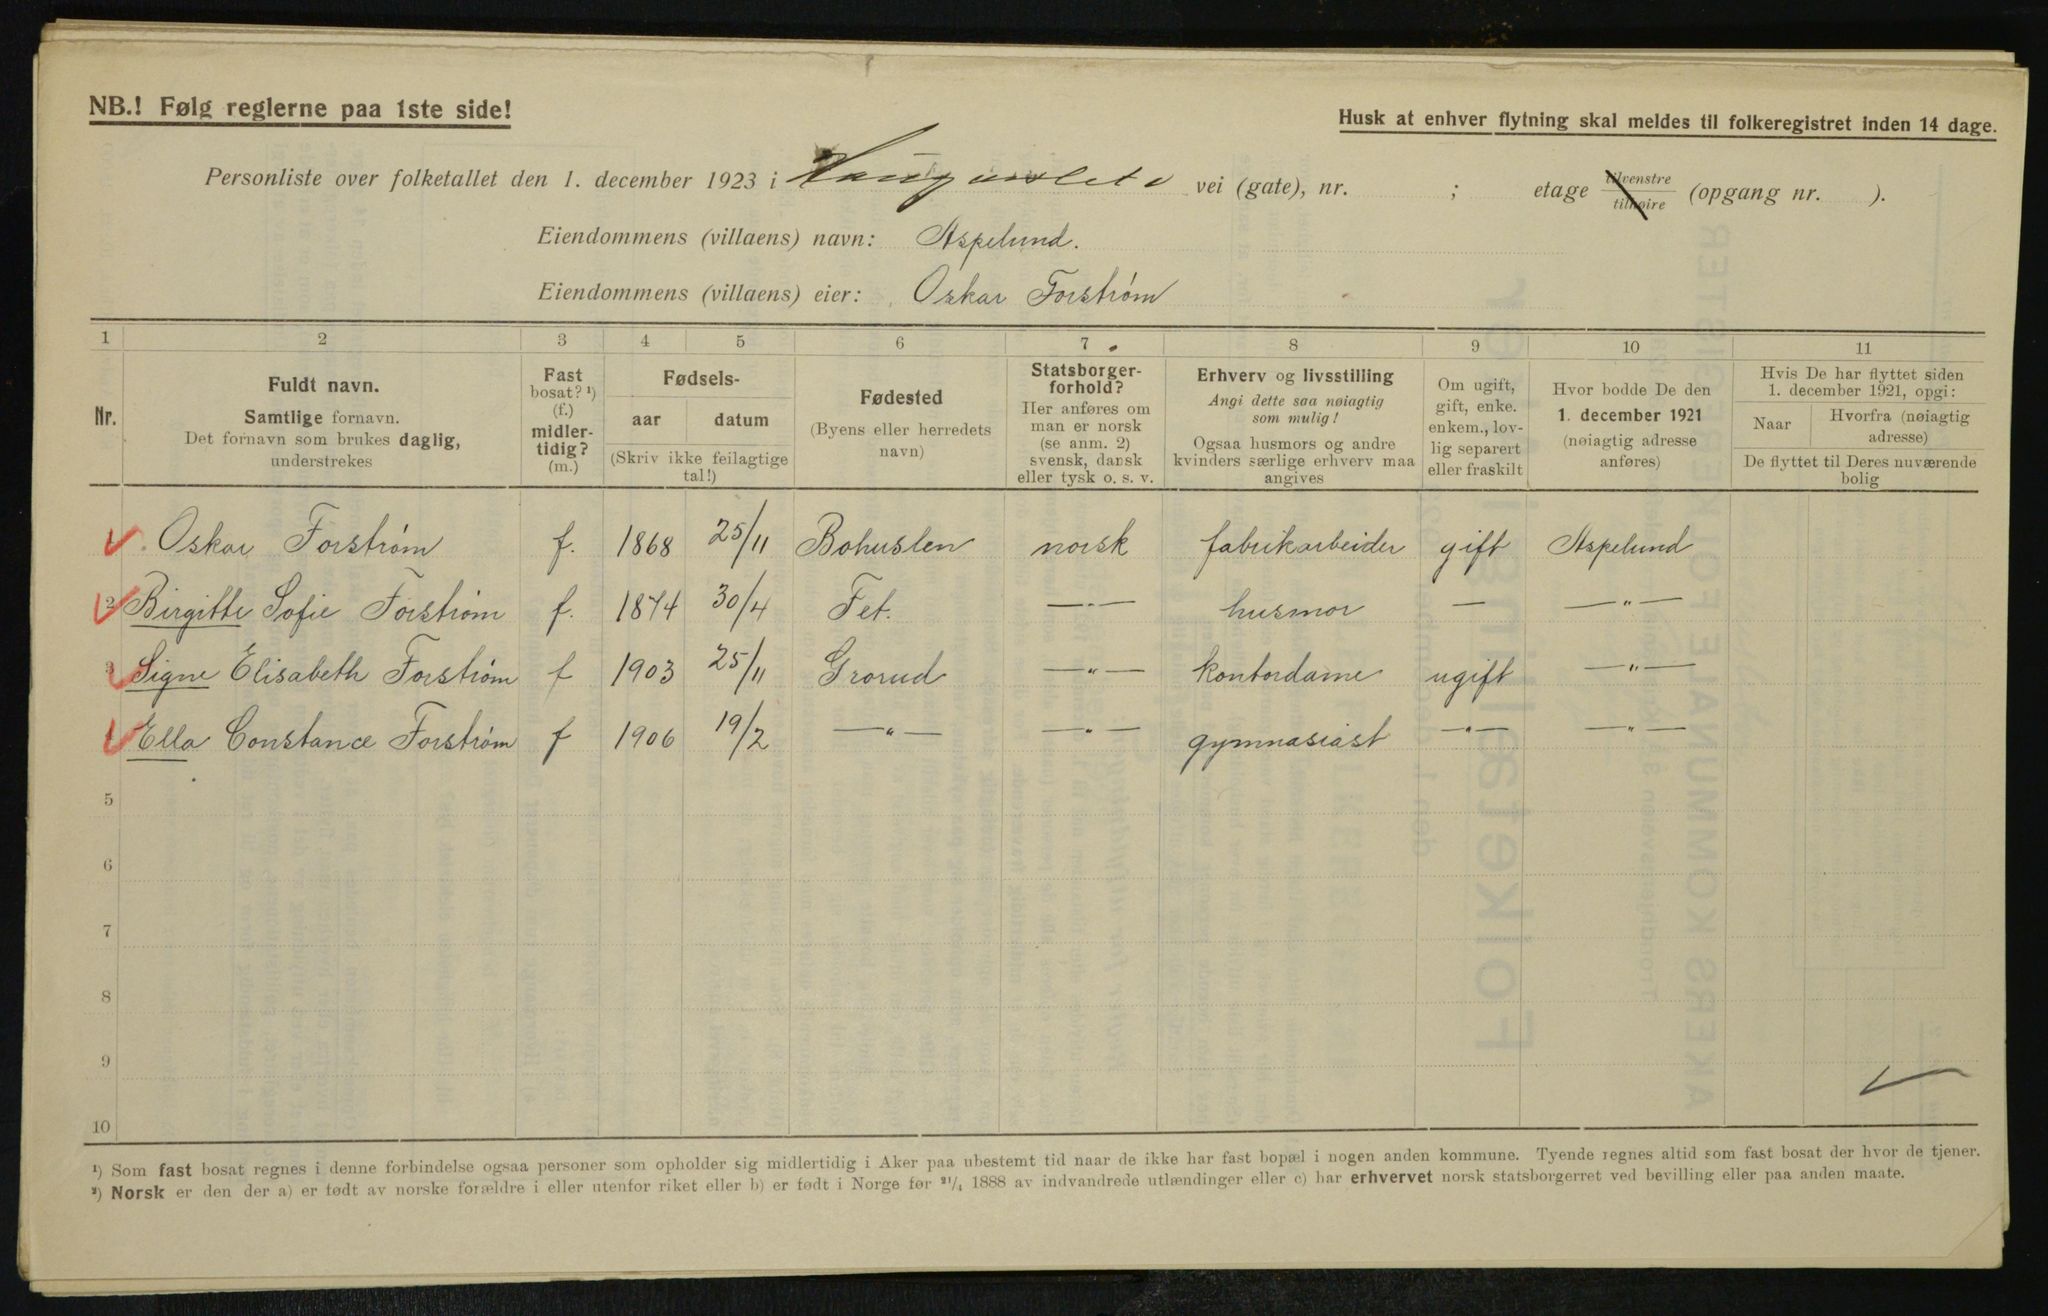 NB.! Følg reglerne paa 1ste side!
Husk at enhver flytning skal meldes til folkeregistret inden 14 dage.
Personliste over folketallet den 1. december 1923 i vei (gate), nr. ; etage tilvenstre tilhøire (opgang nr. ).
Eiendommens (villaens) navn: Aspelund.
Eiendommens (villaens) eier: Oskar Forstrøm
1 2 3 4 5 6 7 8 9 10 11
Nr.
Fuldt navn.
Samtlige fornavn.
Det fornavn som brukes daglig,
understrekes
Fast
bosat? ¹)
(f.)
midler-
tidig?
(m.)
Fødsels-
aar datum
(Skriv ikke feilagtige
tal!)
Fødested
(Byens eller herredets
navn)
Statsborger-
forhold?
Her anføres om
man er norsk
(se anm. 2)
svensk, dansk
eller tysk o. s. v.
Erhverv og livsstilling
Angi dette saa nøiagtig
som mulig!
Ogsaa husmors og andre
kvinders særlige erhverv maa
angives
Om ugift,
gift, enke.
enkem., lov-
lig separert
eller fraskilt
Hvor bodde De den
1. december 1921
(nøiagtig adresse
anføres)
Hvis De har flyttet siden
1. december 1921, opgi:
Naar Hvorfra (nøiagtig
adresse)
De flyttet til Deres nuværende
bolig
1 Oskar Forstrøm f. 1868 25/11 Bohuslen norsk fabrikarbeider gift Aspelund
2 Birgitte Sofie Forstrøm f. 1874 30/4 Fet. —"— husmor — —"—
3 Signe Elisabeth Forstrøm f 1903 25/11 Grorud —"— kontordame ugift —"—
4 Ella Constance Forstrøm f 1906 19/2 —"— —"— gymnasiast —"— —"—
5
6
7
8
9
10
¹) Som fast bosat regnes i denne forbindelse ogsaa personer som opholder sig midlertidig i Aker paa ubestemt tid naar de ikke har fast bopæl i nogen anden kommune. Tyende regnes altid som fast bosat der hvor de tjener.
²) Norsk er den der a) er født av norske forældre i eller utenfor riket eller b) er født i Norge før ²¹/₄ 1888 av indvandrede utlændinger eller c) har erhvervet norsk statsborgerret ved bevilling eller paa anden maate.